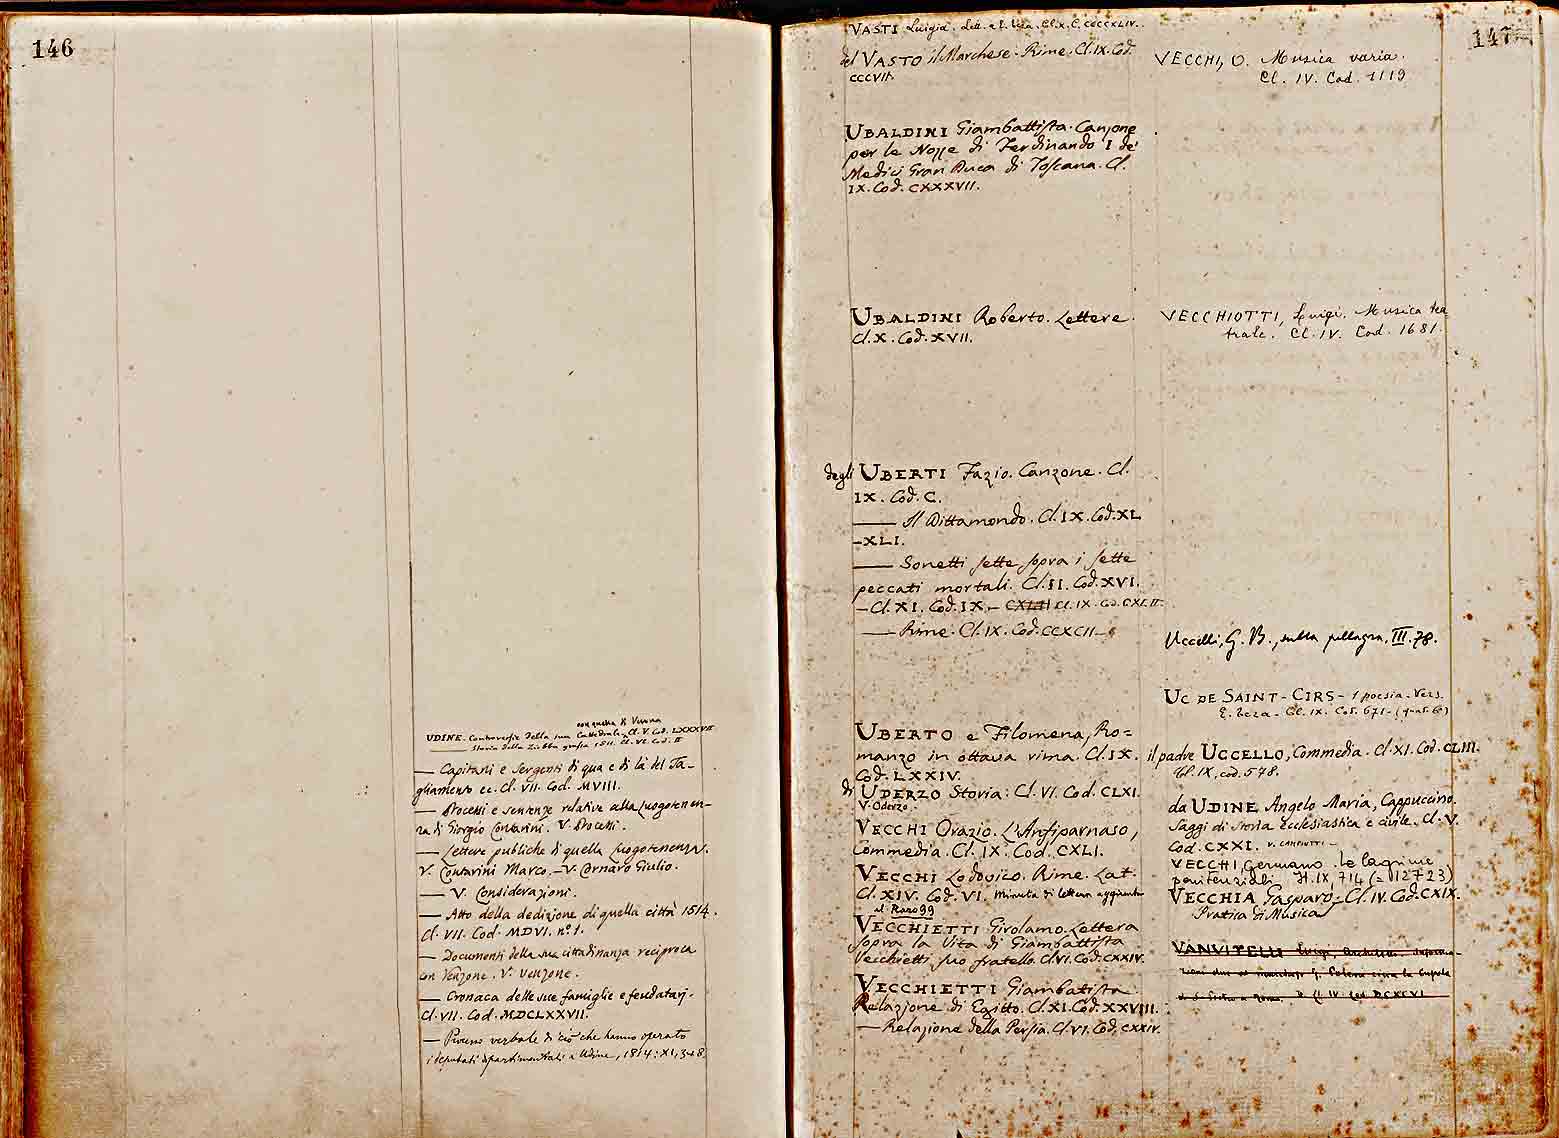 146
con quella di Verona
UDINE. Controversie della sua Cattedrale. Cl. V. Cod. LXXXVII
Storia della Zobba grassa 1511. Cl. VI. Cod. II
— Capitani e Sergenti di qua e di là del Ta-
gliamento ec. Cl. VII. Cod. MVIII.
— Processi e sentenze relative alla Luogotenen-
za di Giorgio Contarini. V. Processi.
— Lettere publiche di quella Luogotenenza.
V. Contarini Marco. — V. Cornaro Giulio.
— V. Considerazioni.
— Atto della dedizione di quella città 1514.
Cl. VII. Cod. MDVI. nº. 1.
— Documenti della sua cittadinanza reciproca
con Venzone. V. Venzone.
— Cronaca delle sue famiglie e feudatarj.
Cl. VII. Cod. MDCLXXVII.
— Processo verbale di ciò che hanno operato
i deputati dipartimentali a Udine, 1814: XI, 348
147
VASTI Luigia. Lett. a E. Teza. Cl. X. C. CDCCXLIV.
del VASTO il Marchese. Rime. Cl. IX. Cod.
CCCVII.
UBALDINI Giambattista. Canzone
per le Nozze di Ferdinando I de'
Medici Gran Duca di Toscana. Cl.
IX. Cod. CXXXVII.
UBALDINI Roberto. Lettere.
Cl. X. Cod. XVII.
degli UBERTI Fazio. Canzone. Cl.
IX. Cod. C.
— Il Dittamondo. Cl. IX. Cod. XL
-XLI.
— Sonetti sette sopra i sette
peccati mortali. Cl. II. Cod. XVI.
— Cl. XI. Cod. IX. — CXLII Cl. IX. Cod. CXLII.
— Rime. Cl. IX. Cod. CCXCII.
UBERTO e Filomena, Ro-
manzo in ottava rima. Cl. IX.
Cod. LXXIV.
di UDERZO Storia: Cl. VI. Cod. CLXI.
V. Oderzo.
VECCHI Orazio. L'Anfiparnaso,
Commedia. Cl. IX. Cod. CXLI.
VECCHI Lodovico. Rime. Lat.
Cl. XIV. Cod. VI. Minuta di lettera aggiunta
al Raro 99
VECCHIETTI Girolamo. Lettera
sopra la Vita di Giambattista
Vecchietti suo fratello. Cl. VI. Cod. CXXIV.
VECCHIETTI Giambatista.
Relazione di Egitto. Cl. XI. Cod. XXVIII.
— Relazione della Persia. Cl. VI. Cod. CXXIV.
VECCHI, O. Musica varia.
Cl. IV. Cod. 1119
VECCHIOTTI, Luigi. Musica tea
trale. Cl. IV. Cod. 1681.
Uccelli, G. B., sulla pellagra, III. 78.
UC DE SAINT-CIRS - 1 poesia - Vers.
E. Teza - Cl. IX. Cod. 671 -
il padre UCCELLO, Commedia. Cl. XI. Cod. CLIII.
Cl. IX, cod. 578.
da UDINE Angelo Maria, Cappuccino.
Saggi di storia ecclesiastica e civile. Cl. V.
Cod. CXXI.
VECCHI, Germano. Le lagrime
penitenziali. It. IX, 714 (= 12723)
VECCHIA Gasparo. Cl. IV. Cod. CXIX.
Pratica di Musica
VANVITELLI Luigi Architetto
di S. Pietro a Roma. Cl. IV. Cod. DCXCVI